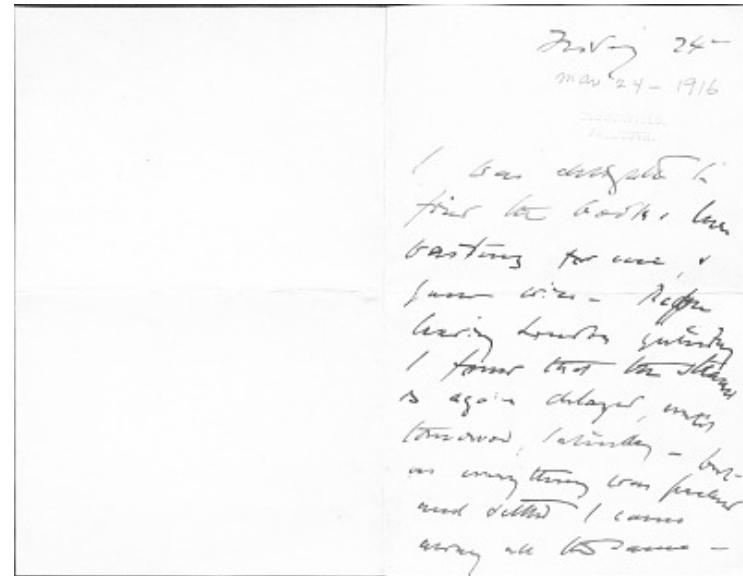 Friday 24-
mar 24 - 1916
I was delighted to
find the books here
waiting for me, &
wire - Before
leaving London yesterday
I found that the steamer
is again delayed, until
tomorrow, Saturday - but
as everything was packed
and settled I came
away all the same -